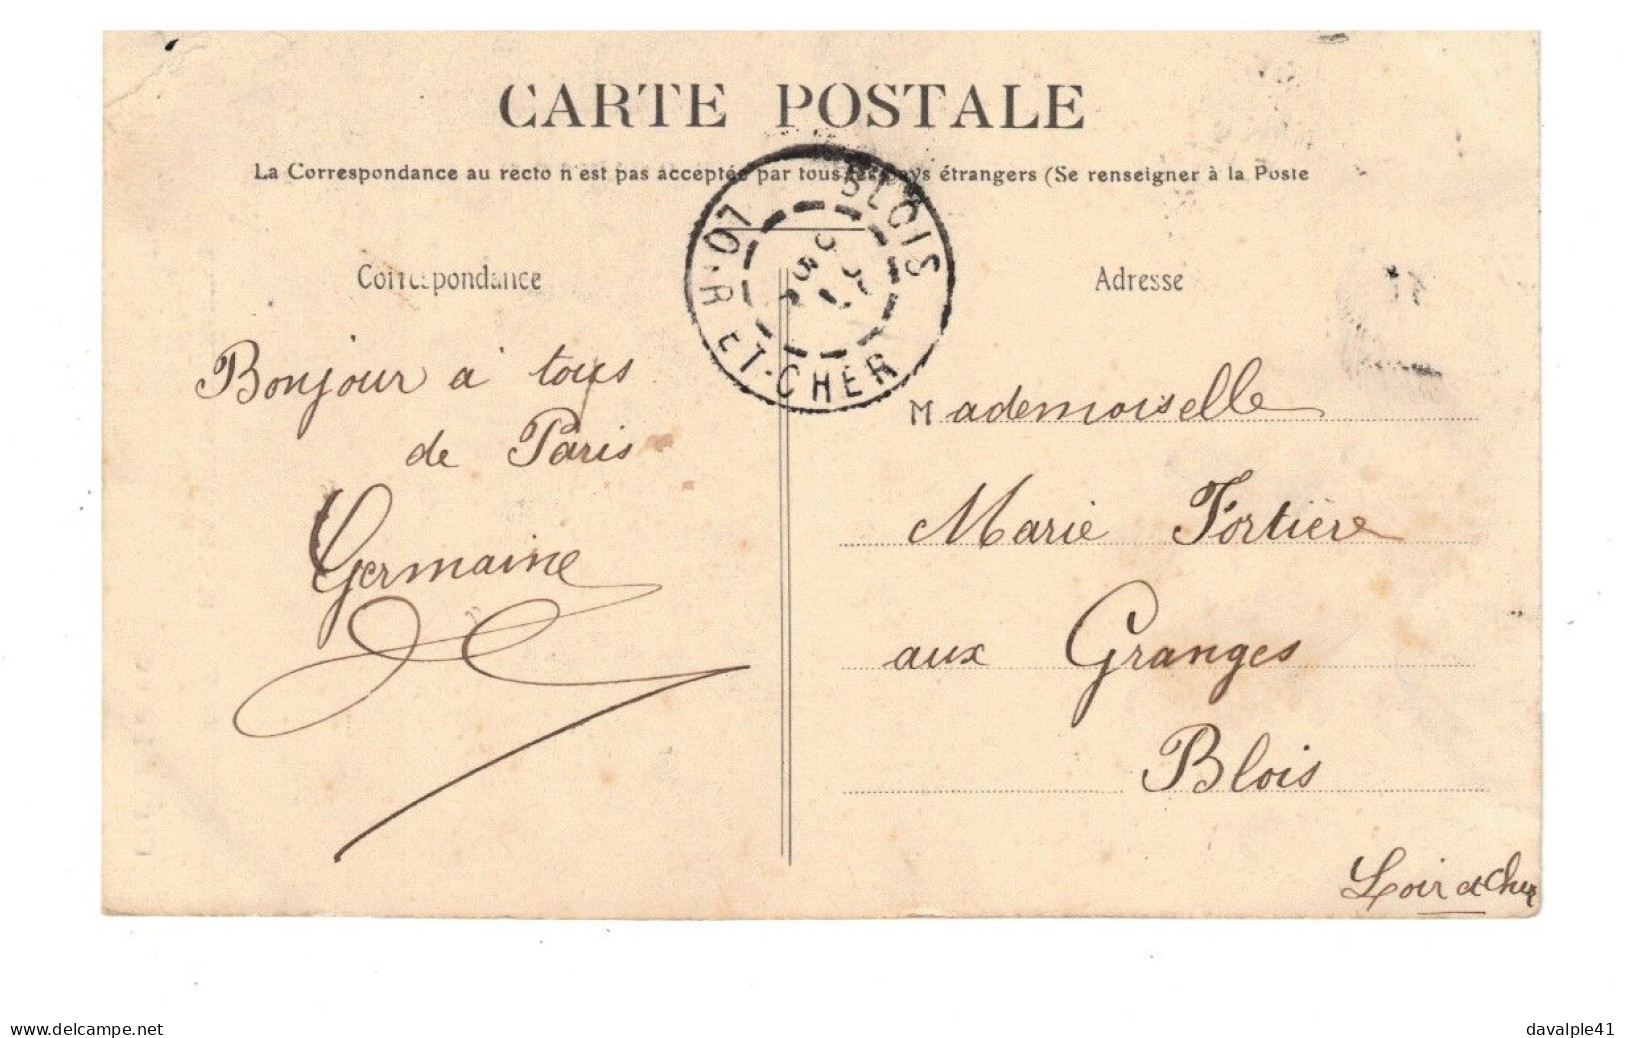 CARTE POSTALE
La Correspondance au recto n'est pas acceptée par tous les pays étrangers (Se renseigner à la Poste
BLOIS
LOIR ET-CHER
Correspondance
Adresse
Bonjour a tous
de Paris
Germaine
Mademoiselle
Marie Fortière
aux Granges
Blois
Loir et Cher
www.delcampe.net
davalple41